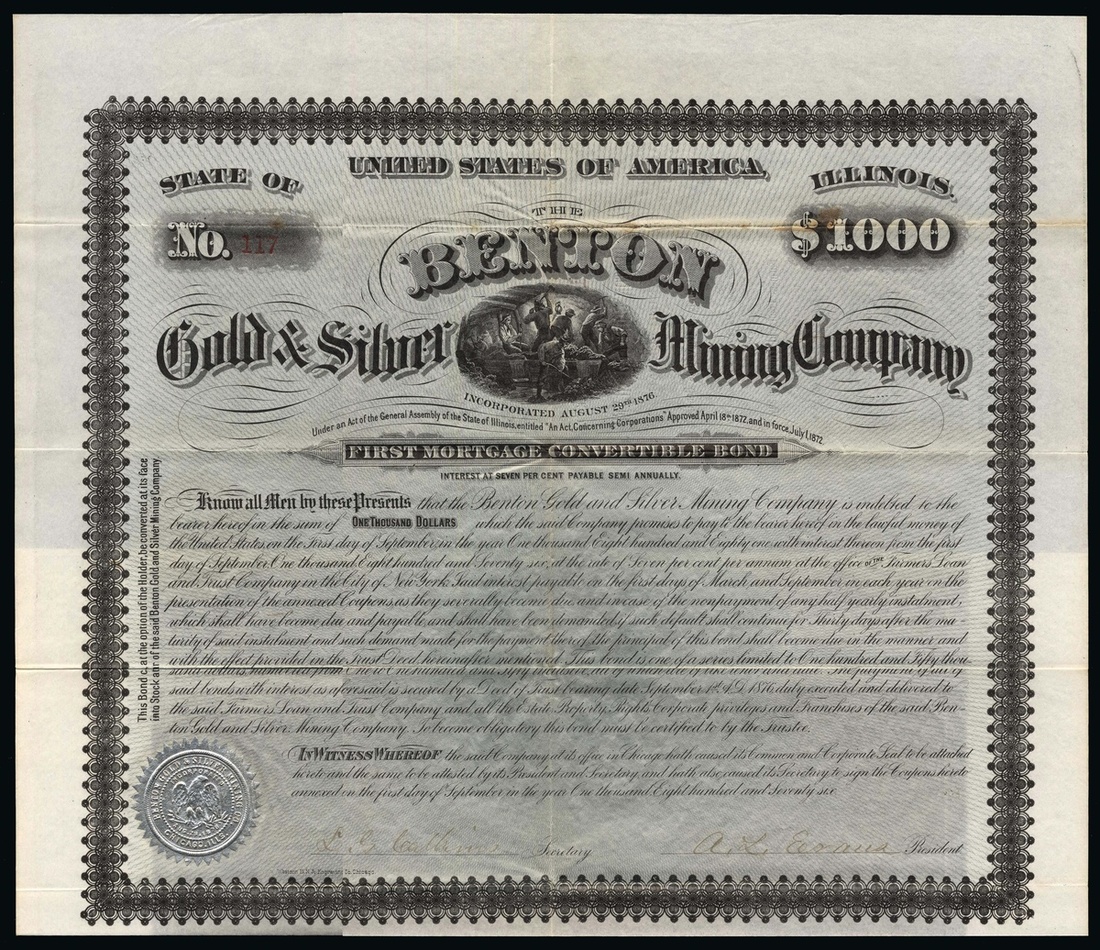 UNITED STATES OF AMERICA,
STATE OF ILLINOIS.
No. 117
$1000
THE
BENTON
Gold & Silver Mining Company
INCORPORATED AUGUST 29TH 1876.
Under an Act of the General Assembly of the State of Illinois, entitled "An Act, Concerning Corporations" Approved April 18th 1872, and in force, July 1, 1872.
FIRST MORTGAGE CONVERTIBLE BOND
INTEREST AT SEVEN PER CENT PAYABLE SEMI ANNUALLY.
Know all Men by these Presents that the Benton Gold and Silver Mining Company is indebted to the
bearer hereof in the sum of ONE THOUSAND DOLLARS which the said Company promises to pay to the bearer hereof in the lawful money of
the United States, on the First day of September, in the year One thousand Eight hundred and Eighty one, with interest thereon from the first
day of September One thousand Eight hundred and Seventy six, at the rate of Seven per cent per annum at the office of the Farmers Loan
and Trust Company in the City of New York. Said interest payable on the first days of March and September on each year on the
presentation of the annexed Coupons, as they serverally become due and in case of the nonpayment of any half yearly instalment,
which shall have become due and payable and shall have been demanded, if such default shall continue for Thirty days after the ma-
turity of said instalment and such demand made for the payment thereof, the principal of this bond shall become due in the manner and
with the effect provided in the Trust Deed, hereinafter mentioned. This bond is one of a series limited to One hundred and Fifty thou-
sand dollars, numbered from One to One hundred and Fifty inclusive, The payment of all of
said bonds with interest as aforesaid is secured by a Deed of Trust bearing date September 1st A.D. 1876 duly executed and delivered to
the said Farmers Loan and Trust Company and all the Estate, Property, Rights, Corporate privileges and Franchises of the said, Ben-
ton Gold and Silver Mining Company. To become obligatory this bond must be certified to by the Trustee.
IN WITNESS WHEREOF the said Company at its office in Chicago hath caused its Common and Corporate Seal to be attached
hereto and the same to be attested by its President and Secretary, and hath also caused its Secretary to sign the Coupons hereto
annexed on the first day of September in the year One thousand Eight hundred and Seventy six.
Secretary
A. L. Evans President
This Bond c at the option of the Holder, be converted at its face
into Stock at ar of the said Benton Gold and Silver Mining Company
BENTON GOLD & SILVER MINING CO.
INCORPORATED
CHICAGO, ILLS.
Engraving Co. Chicago.